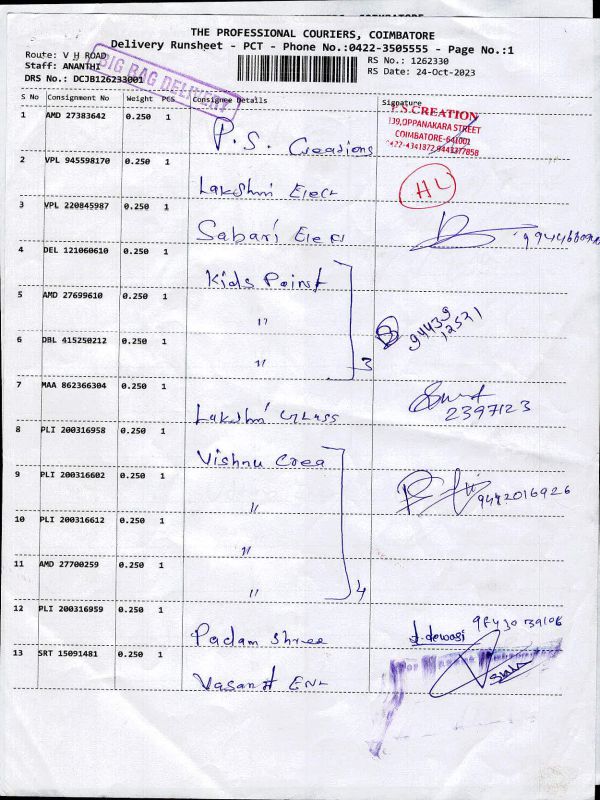 THE PROFESSIONAL COURIERS, COIMBATORE
Delivery Runsheet - PCT - Phone No.:0422-3505555 - Page No.:1
Route: V H ROAD
Staff: ANANTHI
DRS No.: DCJB126233001
RS No.: 1262330
RS Date: 24-Oct-2023
BIG BAG DELIVERY
S No Consignment No Weight PCS Consignee Details Signature
1 AMD 27383642 0.250 1 P.S. Creations
P.S.CREATION
139,OPPANAKARA STREET
COIMBATORE-641001
2 VPL 945598170 0.250 1 Lakshmi Elect HL
3 VPL 220845987 0.250 1 Sabari Elect
4 DEL 121060610 0.250 1 Kids Point
5 AMD 27699610 0.250 1 "
94439
12521
6 DBL 415250212 0.250 1 " 3
7 MAA 862366304 0.250 1 Lakshmi Glass 2397123
8 PLI 200316958 0.250 1 Vishnu Crea
9 PLI 200316602 0.250 1 " 9442016926
10 PLI 200316612 0.250 1 "
11 AMD 27700259 0.250 1 " 4
12 PLI 200316959 0.250 1 Padam Shree d.dewasi
13 SRT 15091481 0.250 1 Vasant